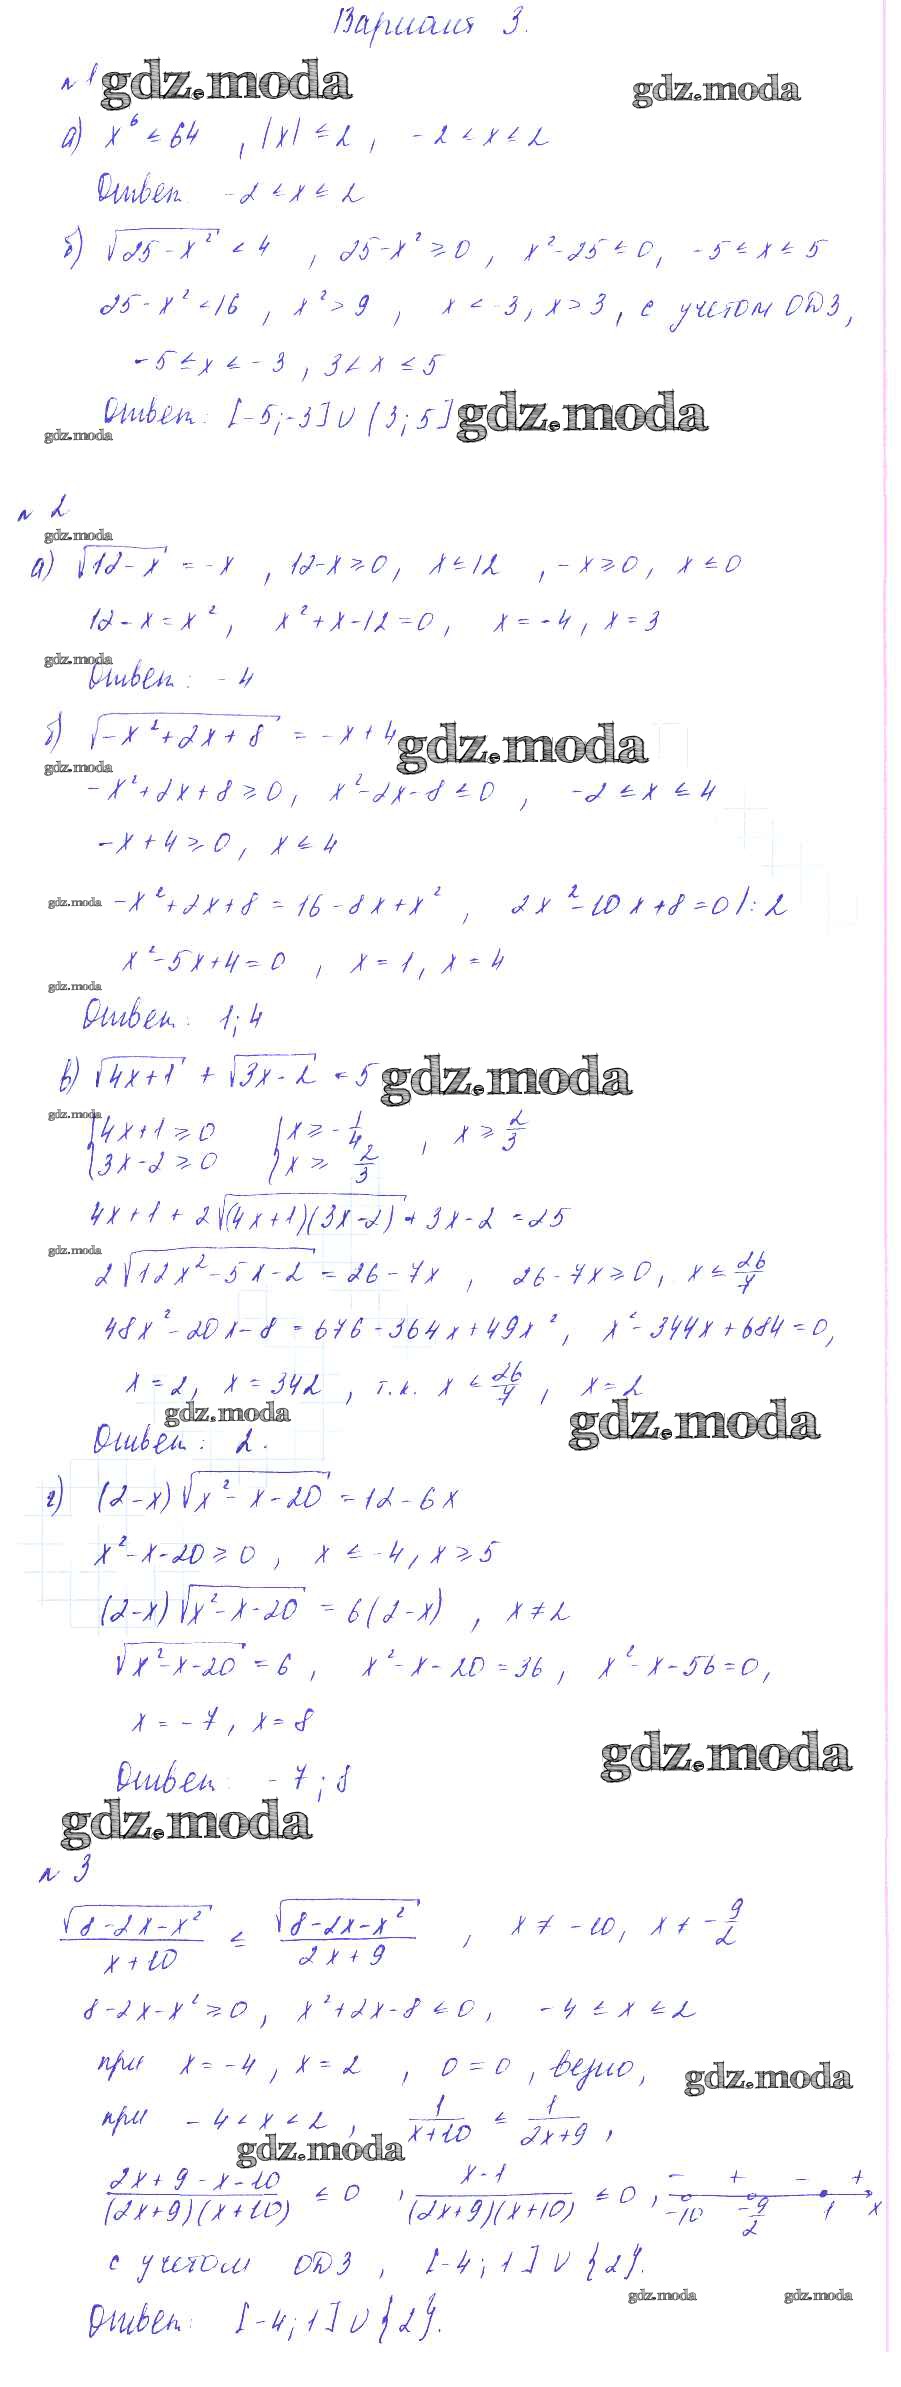 Вариант 3.
№1 gdz.moda gdz.moda
а) x⁶ ≤ 64 , |x| ≤ 2 , -2 ≤ x ≤ 2
Ответ -2 ≤ x ≤ 2
б) √(25-x²) < 4 , 25-x² ≥ 0 , x²-25 ≤ 0, -5 ≤ x ≤ 5
25-x² < 16 , x² > 9 , x < -3, x > 3 , с учетом ОДЗ,
-5 ≤ x < -3 , 3 < x ≤ 5
Ответ: [-5;-3] ∪ (3;5] gdz.moda
gdz.moda
№ 2
gdz.moda
а) √(12-x) = -x , 12-x ≥ 0, x ≤ 12 , -x ≥ 0, x ≤ 0
12-x = x² , x²+x-12=0, x=-4, x=3
gdz.moda
Ответ: -4
б) √(-x²+2x+8) = -x+4 gdz.moda
gdz.moda
-x²+2x+8 ≥ 0, x²-2x-8 ≤ 0 , -2 ≤ x ≤ 4
-x+4 ≥ 0, x ≤ 4
gdz.moda -x²+2x+8 = 16-8x+x² , 2x²-10x+8=0 |:2
x²-5x+4=0 , x=1, x=4
gdz.moda
Ответ: 1;4
в) √(4x+1) + √(3x-2) = 5 gdz.moda
gdz.moda
{4x+1 ≥ 0 {x ≥ -1/4 , x ≥ 2/3
{3x-2 ≥ 0 {x ≥ 2/3
4x+1+2√((4x+1)(3x-2))+3x-2=25
gdz.moda
2√(12x²-5x-2) = 26-7x , 26-7x ≥ 0, x ≤ 26/7
48x²-20x-8=676-364x+49x², x²-344x+684=0,
x=2, x=342 , т.к. x ≤ 26/7 , x=2
gdz.moda gdz.moda
Ответ: 2.
г) (2-x)√(x²-x-20) = 12-6x
x²-x-20 ≥ 0 , x ≤ -4, x ≥ 5
(2-x)√(x²-x-20) = 6(2-x) , x≠2
√(x²-x-20) = 6 , x²-x-20=36, x²-x-56=0,
x=-7, x=8
gdz.moda
Ответ: -7;8
gdz.moda
№ 3
√(8-2x-x²)/(x+10) ≤ √(8-2x-x²)/(2x+9) , x≠-10, x≠-9/2
8-2x-x² ≥ 0, x²+2x-8 ≤ 0, -4 ≤ x ≤ 2
при x=-4, x=2 , 0=0 , верно, gdz.moda
при -4 < x < 2 , 1/(x+10) ≤ 1/(2x+9) ,
gdz.moda
(2x+9-x-10)/((2x+9)(x+10)) ≤ 0 , (x-1)/((2x+9)(x+10)) ≤ 0 , - + - +
-10 -9/2 1 x
с учетом ОДЗ , [-4;1] ∪ {2}.
gdz.moda gdz.moda
Ответ: [-4;1] ∪ {2}.